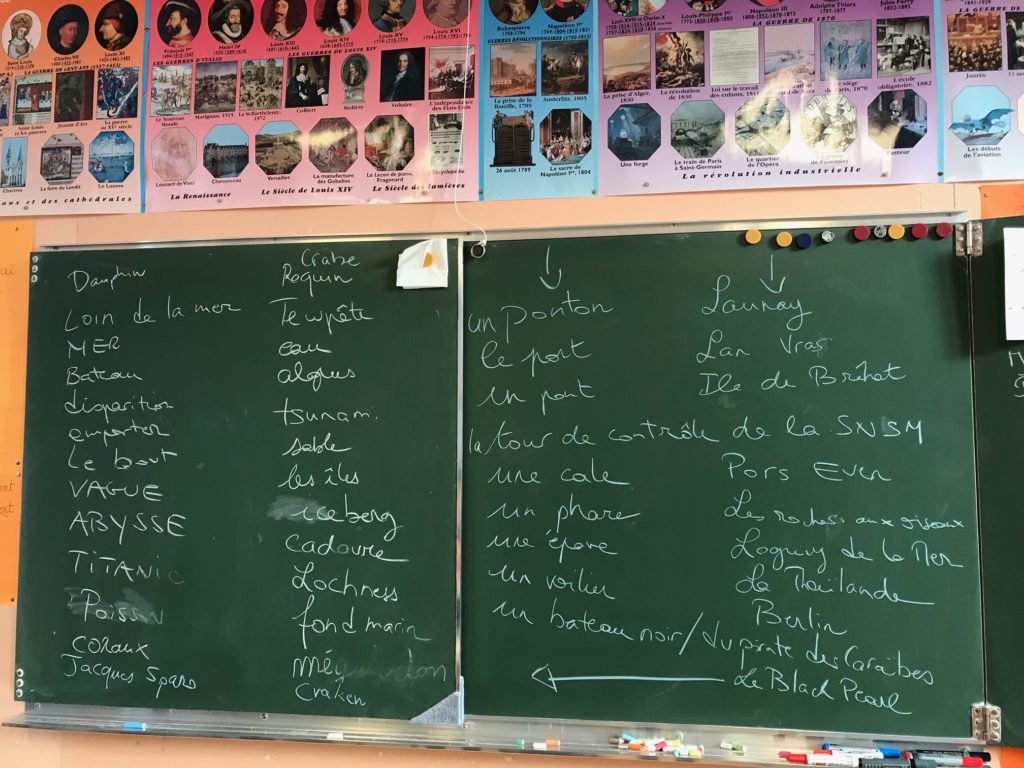 Saint Louis
Charles VII
Louis XI
François Ier
Henri IV
Louis XIII
Louis XIV
Louis XV
Louis XVI
Robespierre
1758-1794
Napoléon Ier
Louis XVIII et Charles X
Louis-Philippe Ier
Napoléon III
Adolphe Thiers
1797-1877
Jules Ferry
LA GUERRE DE CENT ANS
LES GUERRES D'ITALIE
LES GUERRES DE LOUIS XIV
GUERRES RÉVOLUTIONNAIRES
LA GUERRE DE 1870
Saint Louis
Jeanne d'Arc
La guerre
au XVe siècle
Le Nouveau
Monde
Marignan, 1515
La St Barthélemy,
1572
Colbert
Molière
Voltaire
L'indépendance
des États-Unis
La prise de la
Bastille, 1789
Austerlitz, 1805
La prise d'Alger,
1830
La révolution
de 1830
Loi sur le travail
des enfants
L'école
obligatoire, 1882
Jaurès
Chartres
La foire du Lendit
Le Louvre
Léonard de Vinci
Chenonceau
Versailles
La manufacture
des Gobelins
Fragonard
Encyclopédie
26 août 1789
Le sacre de
Napoléon Ier, 1804
Une forge
Le train de Paris
à Saint-Germain
Le quartier
de l'Opéra
Pasteur
Les débuts
de l'aviation
aux et des cathédrales
La Renaissance
Le Siècle de Louis XIV
Le Siècle des lumières
La révolution industrielle
Dauphin
Loin de la mer
MER
Bateau
disparition
emporter
Le bout
VAGUE
ABYSSE
TITANIC
Poisson
coraux
Jacques Sparo
Crabe
Requin
Tempête
eau
algues
tsunami
sable
les îles
iceberg
cadavre
Lochness
fond marin
Craken
un ponton
le port
un pont
la tour de contrôle de la SNSM
une cale
un phare
une épave
un voilier
un bateau noir / du pirate des Caraïbes
Launay
Lan Vras
Ile de Bréhat
Pors Even
Les roches aux oiseaux
Loguivy de la Mer
La Thaïlande
Berlin
Le Black Pearl